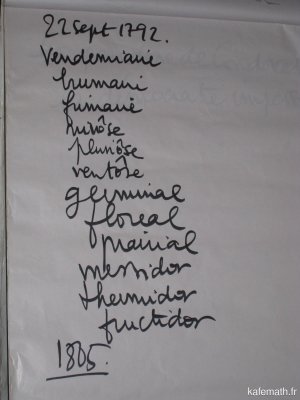 22 sept 1792.
Vendemiaire
brumaire
frimaire
nivôse
pluviôse
ventôse
germinal
floreal
prairial
messidor
thermidor
fructidor
1805.
kafemath.fr